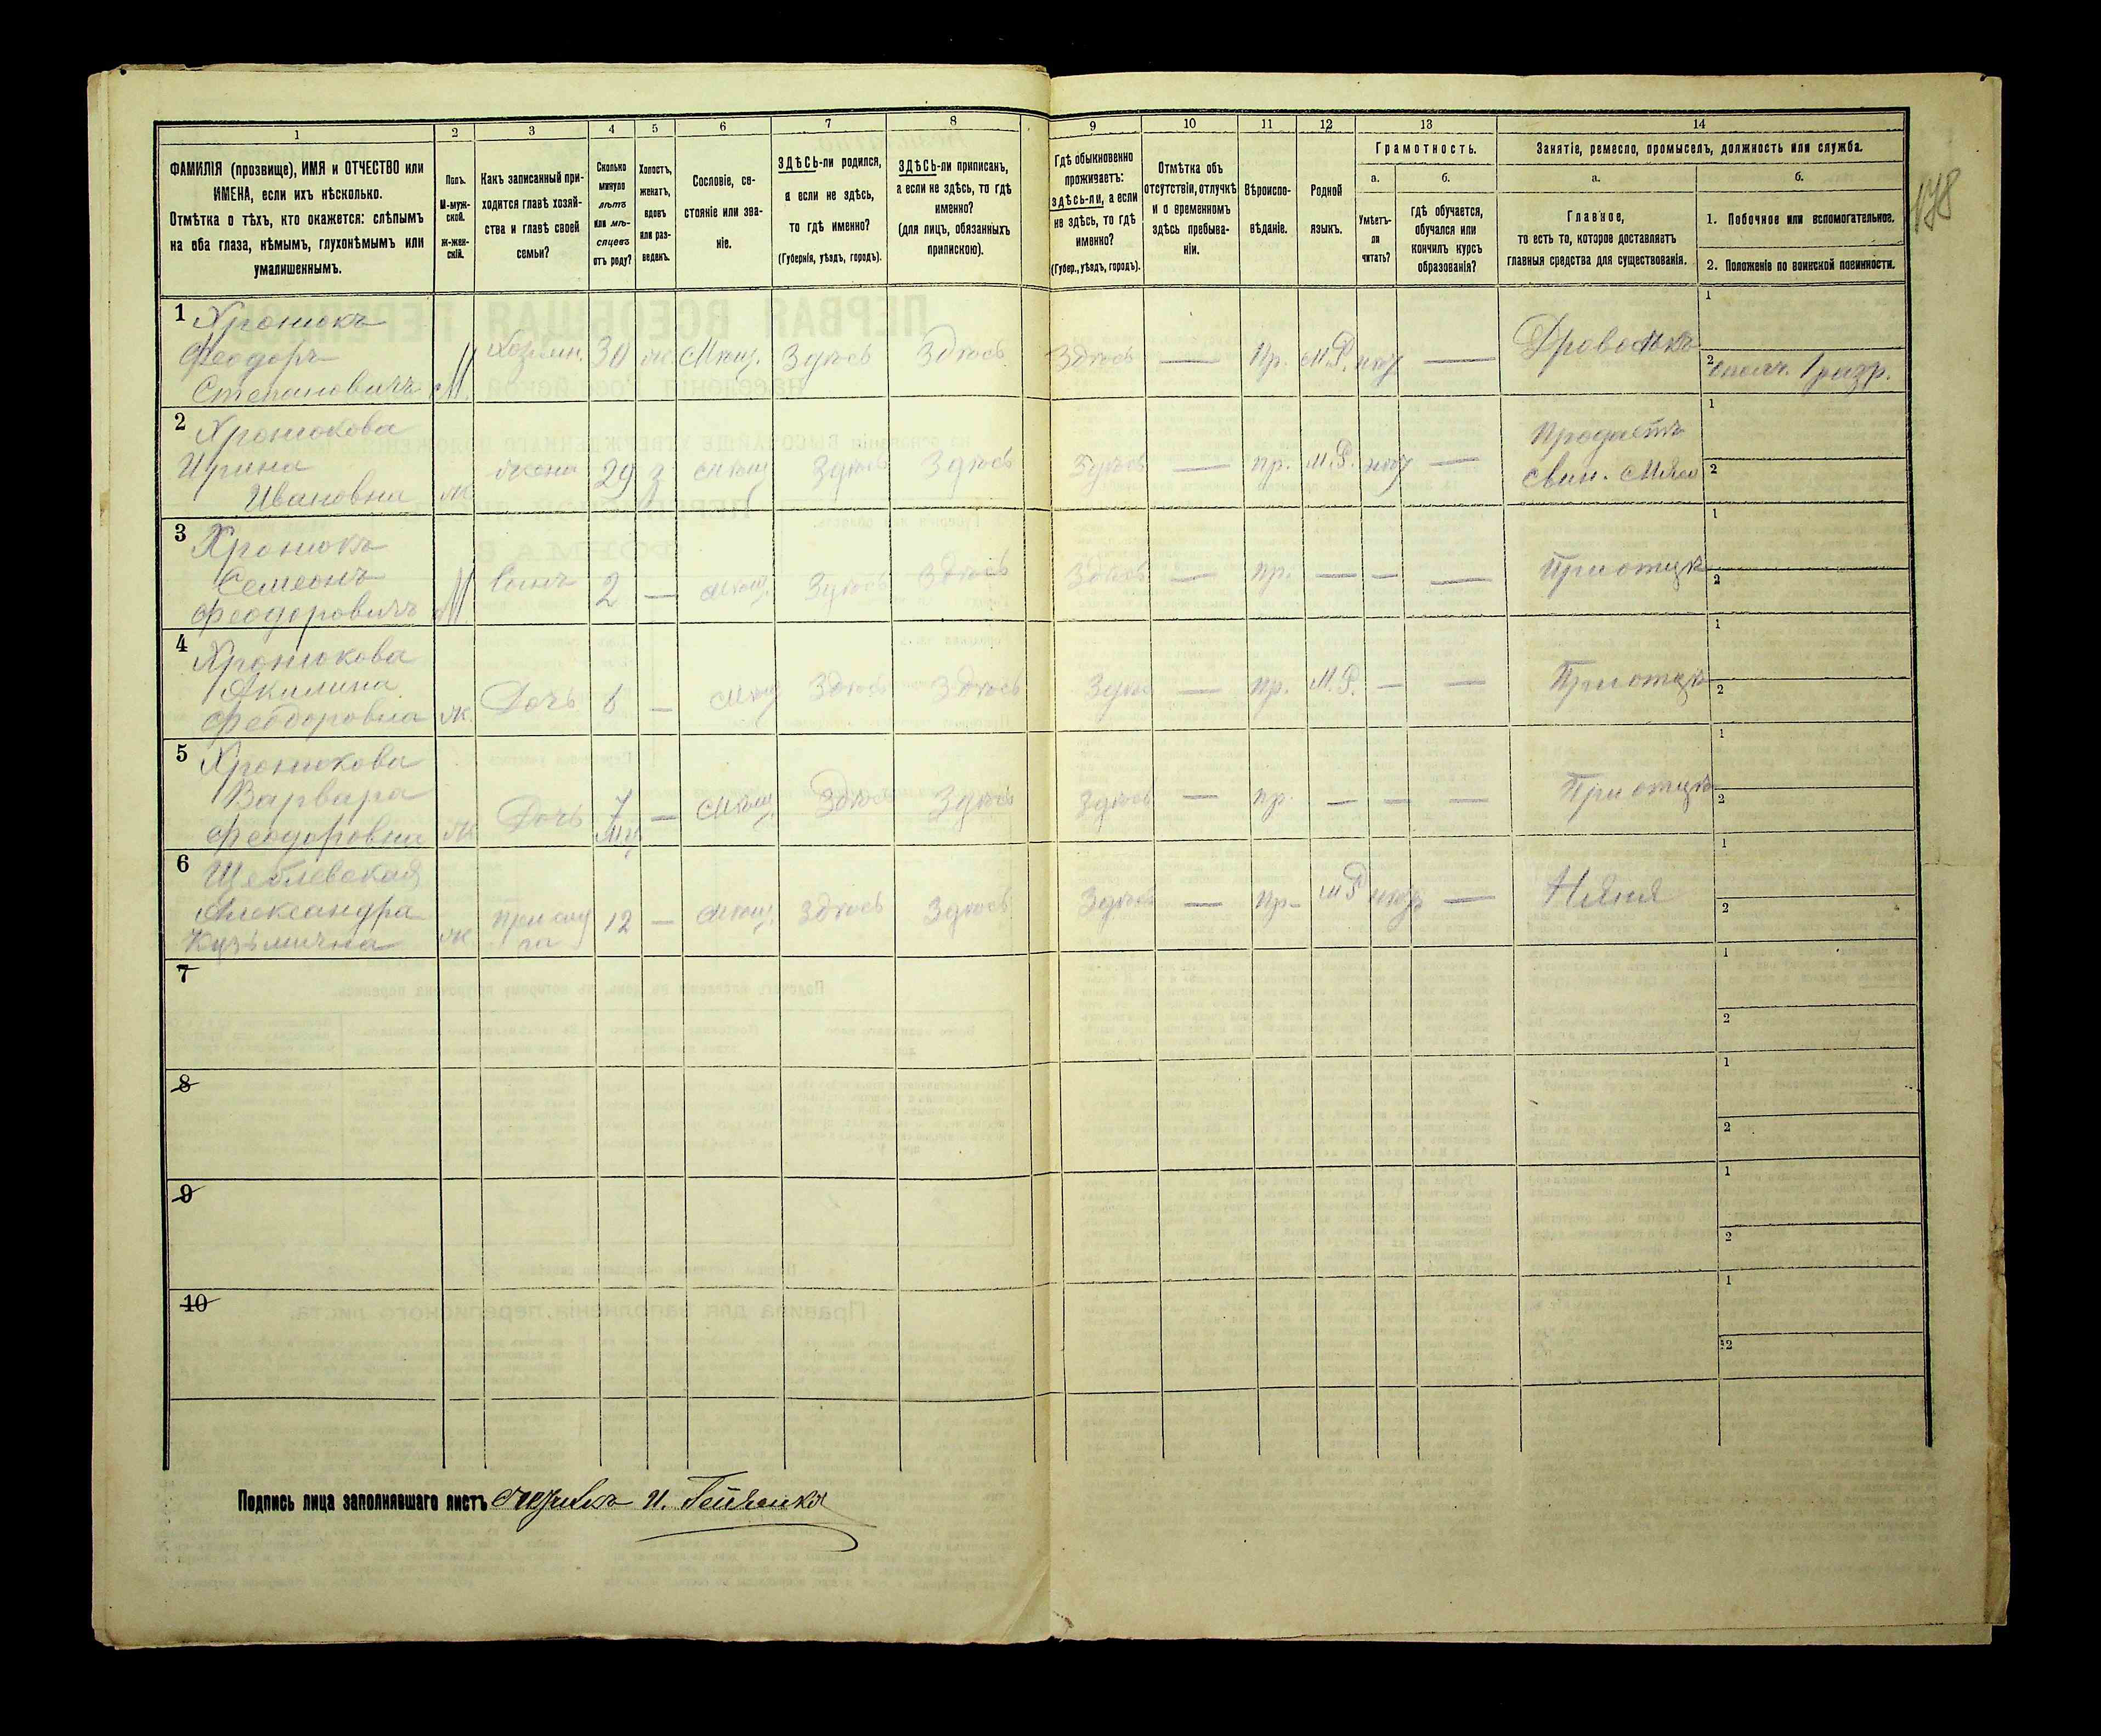 1 2 3 4 5 6 7 8 9 10 11 12 13 14
ФАМИЛІЯ (прозвище), ИМЯ и ОТЧЕСТВО или
ИМЕНА, если ихъ нѣсколько.
Отмѣтка о тѣхъ, кто окажется: слѣпымъ
на оба глаза, нѣмымъ, глухонѣмымъ или
умалишеннымъ.
Полъ.
М-муж-
ской.
ж-жен-
скій.
Какъ записанный при-
ходится главѣ хозяй-
ства и главѣ своей
семьи?
Сколько
минуло
лѣтъ
или мѣ-
сяцевъ
отъ роду?
Холостъ,
женатъ,
вдовъ
или раз-
веденъ.
Сословіе, со-
стояніе или зва-
ніе.
ЗДѢСЬ-ли родился,
а если не здѣсь,
то гдѣ именно?
(Губернія, уѣздъ, городъ).
ЗДѢСЬ-ли приписанъ,
а если не здѣсь, то гдѣ
именно?
(для лицъ, обязанныхъ
припискою).
Гдѣ обыкновенно
проживаетъ:
здѣсь-ли, а если
не здѣсь, то гдѣ
именно?
(Губер., уѣздъ, городъ).
Отмѣтка объ
отсутствіи, отлучкѣ
и о временномъ
здѣсь пребыва-
ніи.
Вѣроиспо-
вѣданіе.
Родной
языкъ.
Грамотность.
а.
Умѣетъ-
ли
читать?
б.
гдѣ обучается,
обучался или
кончилъ курсъ
образованія?
Занятіе, ремесло, промыселъ, должность или служба.
а.
Главное,
то есть то, которое доставляетъ
главныя средства для существованія.
б.
1. Побочное или вспомогательное.
2. Положеніе по воинской повинности.
178
1 Хронюкъ
Феодоръ
Степановичъ М. Хозяин. 30 ж. Мѣщ. Здѣсь Здѣсь Здѣсь — Пр. М.Р. нѣт — Дровосѣкъ 1
2 ополч. 1 разр.
2 Хронюкова
Ирина
Ивановна ж жена 29 з мѣщ Здѣсь Здѣсь Здѣсь — пр. М.Р. нѣт — Продаетъ 1
свин. мясо 2
3 Хронюкъ
Семеонъ
Феодоровичъ М. Сынъ 2 — мѣщ. Здѣсь Здѣсь Здѣсь — пр. — — — При отцѣ 1
2
4 Хронюкова
Акилина
Феодоровна ж. Дочь 6 — мѣщ Здѣсь Здѣсь Здѣсь — пр. М.Р. — — При отцѣ 1
2
5 Хронюкова
Варвара
Феодоровна ж Дочь 7 — мѣщ. Здѣсь Здѣсь Здѣсь — пр. — — — При отцѣ 1
2
6 Щеблевская
Александра
Кузьмична ж прислу
га 12 — мѣщ. Здѣсь Здѣсь Здѣсь — пр. М.Р нѣт — Няня 1
2
7 1
2
8 1
2
9 1
2
10 1
2
Подпись лица заполнявшаго листъ И.